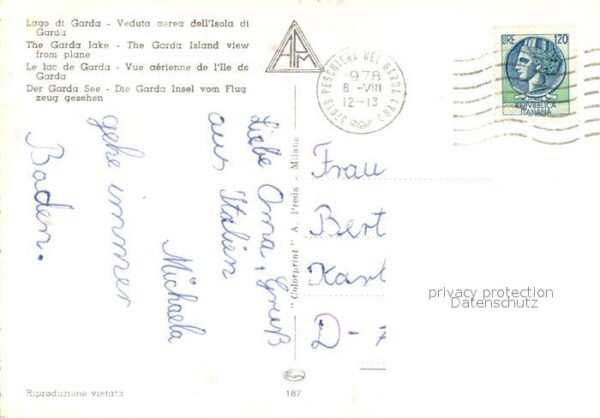 Lago di Garda - Veduta aerea dell'Isola di
Garda
The Garda lake - The Garda Island view
from plane
Le lac de Garda - Vue aérienne de l'île de
Garda
Der Garda See - Die Garda Insel vom Flug
zeug gesehen
APM
37019 PESCHIERA DEL GARDA (VR)
1978
8 -VIII
12-13
LIRE 120
REPVBBLICA
ITALIANA
Liebe Oma, Gruß
aus Italien
Michaela
gehe immer
Baden.
"Colorprint" A. Preda - Milano
Frau
Bert
Karl
D-7
privacy protection
Datenschutz
Riproduzione vietata
187